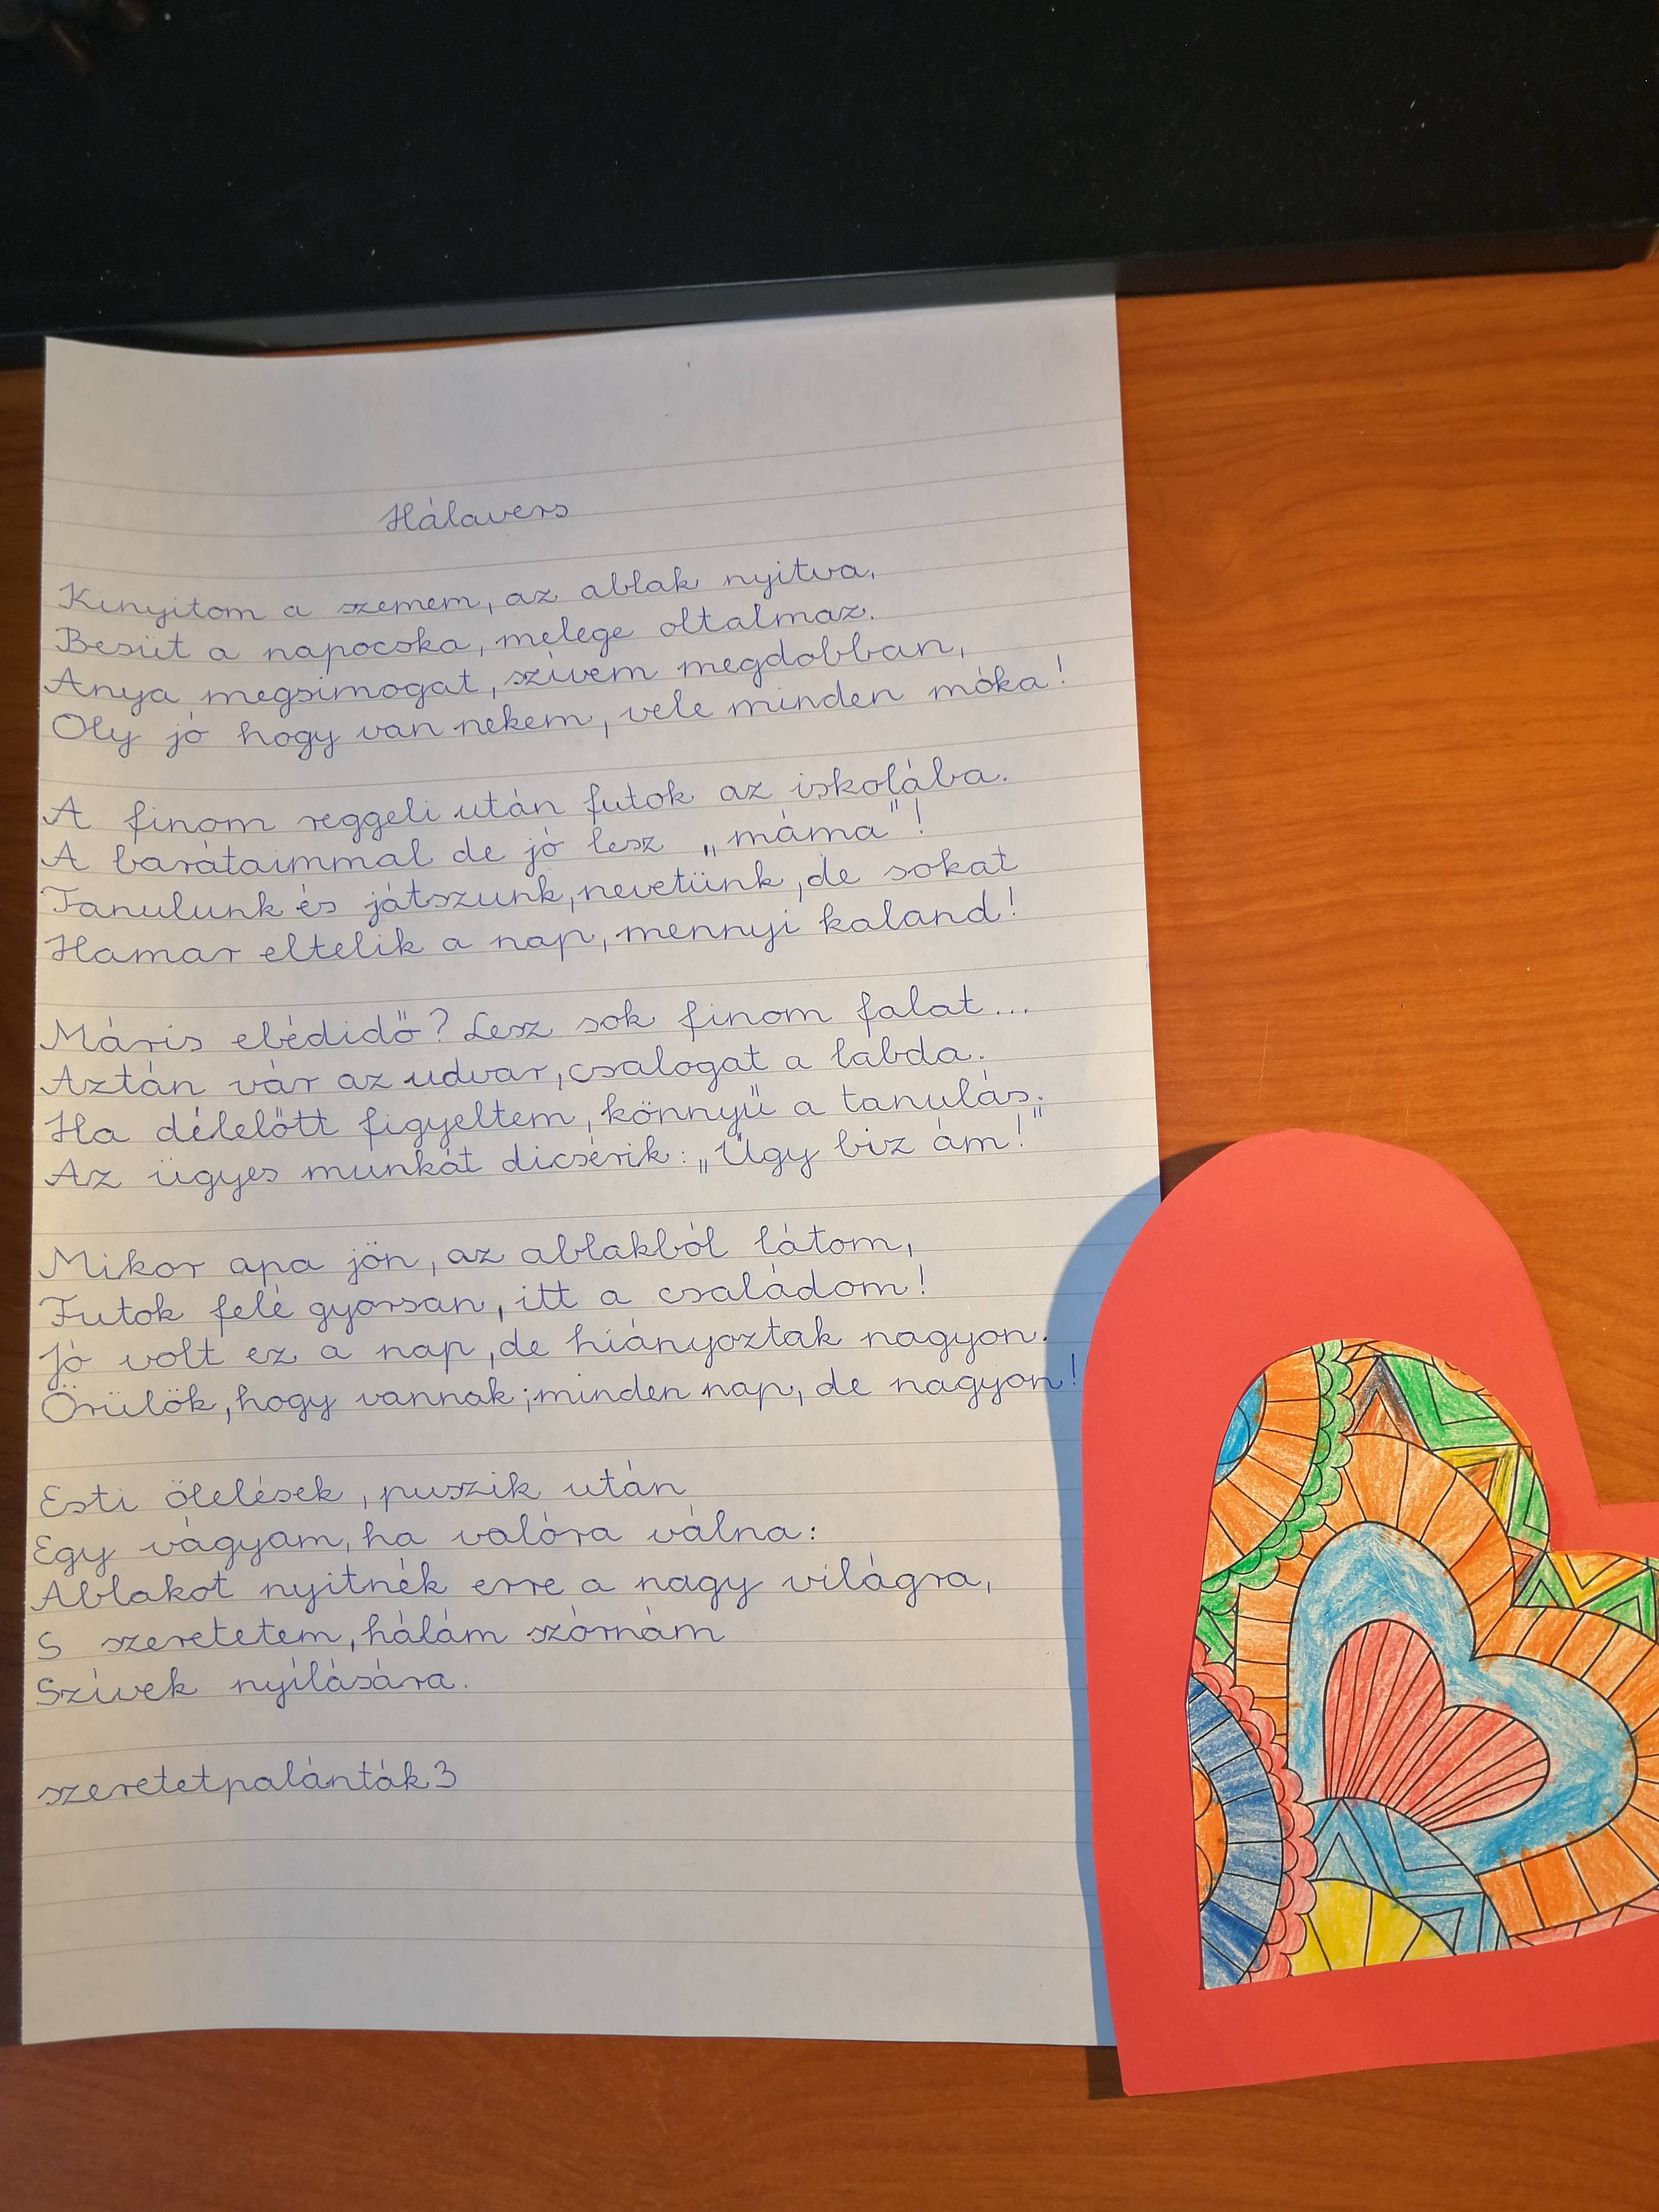 Hálavers
Kinyitom a szemem, az ablak nyitva,
Besüt a napocska, melege oltalmaz.
Anya megsimogat, szívem megdobban,
Oly jó hogy van nekem, vele minden móka!
A finom reggeli után futok az iskolába.
A barátaimmal de jó lesz „máma"!
Tanulunk és játszunk, nevetünk, de sokat
Hamar eltelik a nap, mennyi kaland!
Máris ebédidő? Lesz sok finom falat...
Aztán vár az udvar, csalogat a labda.
Ha délelőtt figyeltem, könnyű a tanulás.
Az ügyes munkát dicsérik: „Úgy biz ám!"
Mikor apa jön, az ablakból látom,
Futok felé gyorsan, itt a családom!
Jó volt ez a nap, de hiányoztak nagyon.
Örülök, hogy vannak; minden nap, de nagyon!
Esti ölelések, puszik után
Egy vágyam, ha valóra válna:
Ablakot nyitnék erre a nagy világra,
S szeretetem, hálám szórnám
Szívek nyílására.
szeretetpalánták3